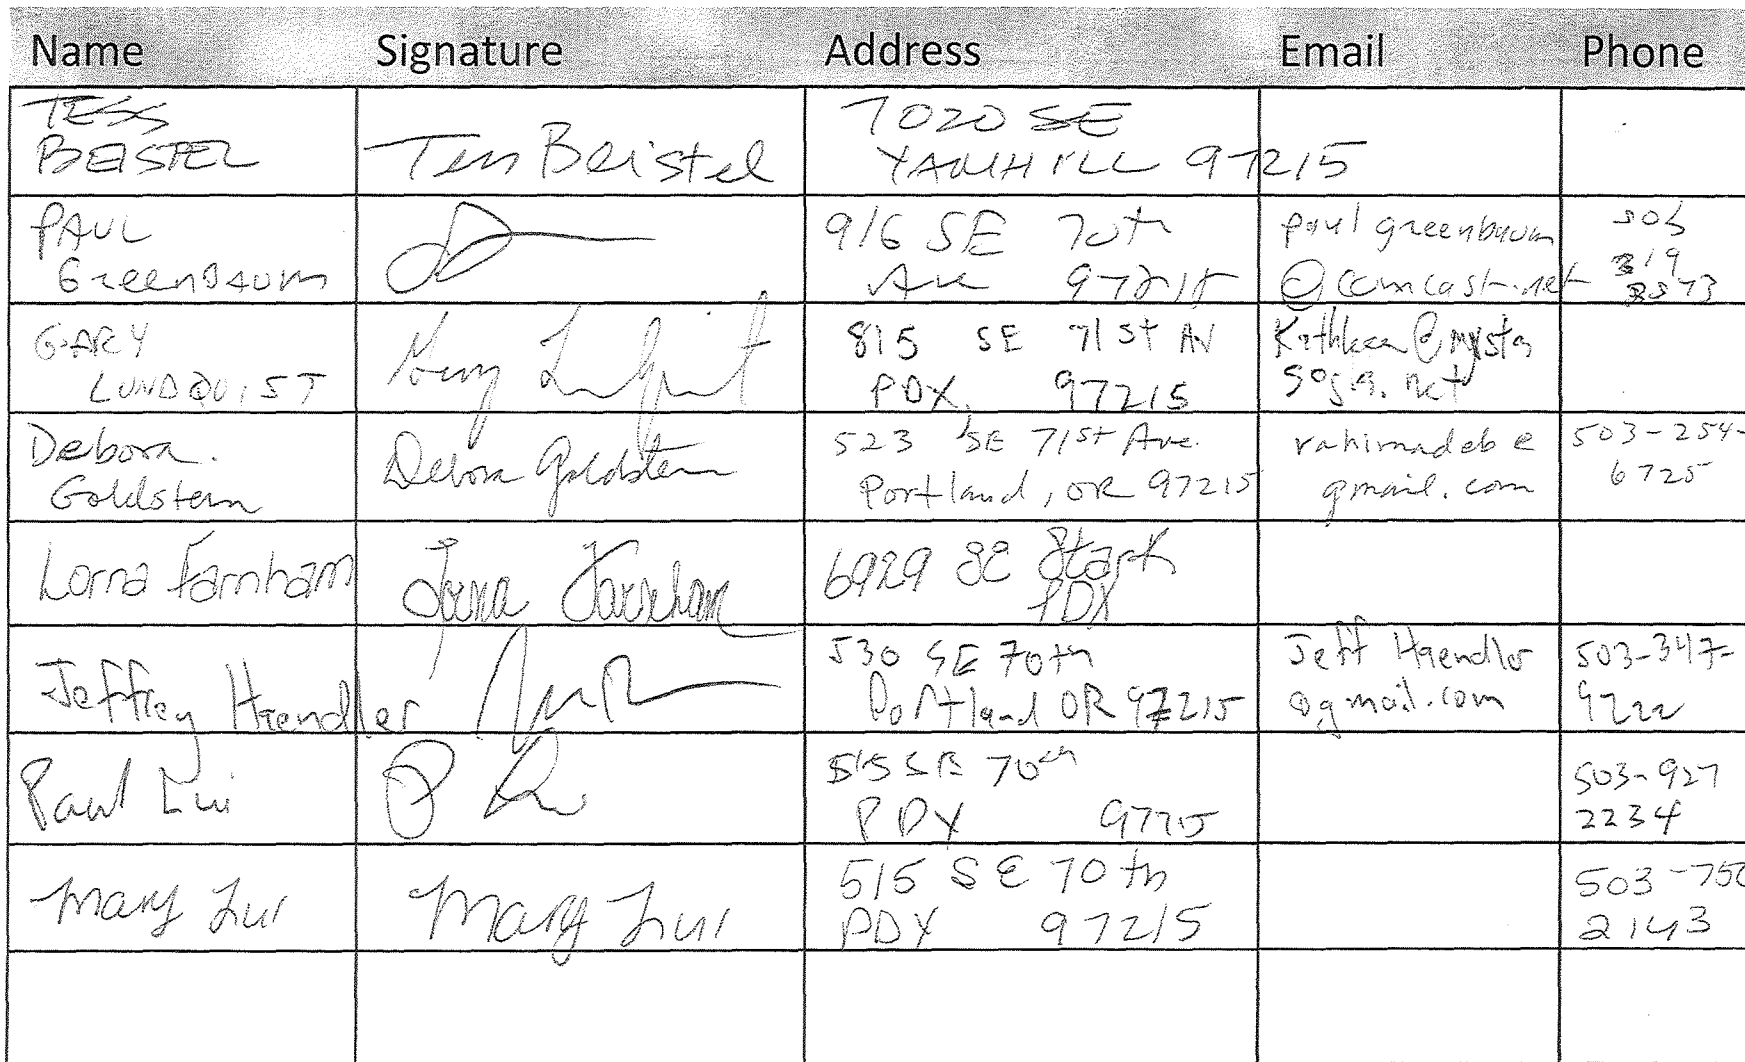 Name Signature Address Email Phone
TESS
BEISTEL
Tess Beistel
7020 SE
YAMHILL 97215
PAUL
GreenBAUM
916 SE 70th
Ave 97215
paul greenbaum
@comcast.net
503
319
GARY
LUNDQUIST
Gary Lundquist
815 SE 71st AV
PDX, 97215
Debora
Goldstein
Debora Goldstein
523 SE 71st Ave.
Portland, OR 97215
rahimadeb@
gmail.com
503-254-
6725
Lorna Farnham
Lorna Farnham
6929 SE Stark
PDX
Jeffrey Haendler
530 SE 70th
Portland OR 97215
Jeff Haendler
@gmail.com
503-347-
9222
Paul Lui
515 SE 70th
PDX 97215
503-927
2234
Mary Lui
Mary Lui
515 SE 70th
PDX 97215
503-750
2143